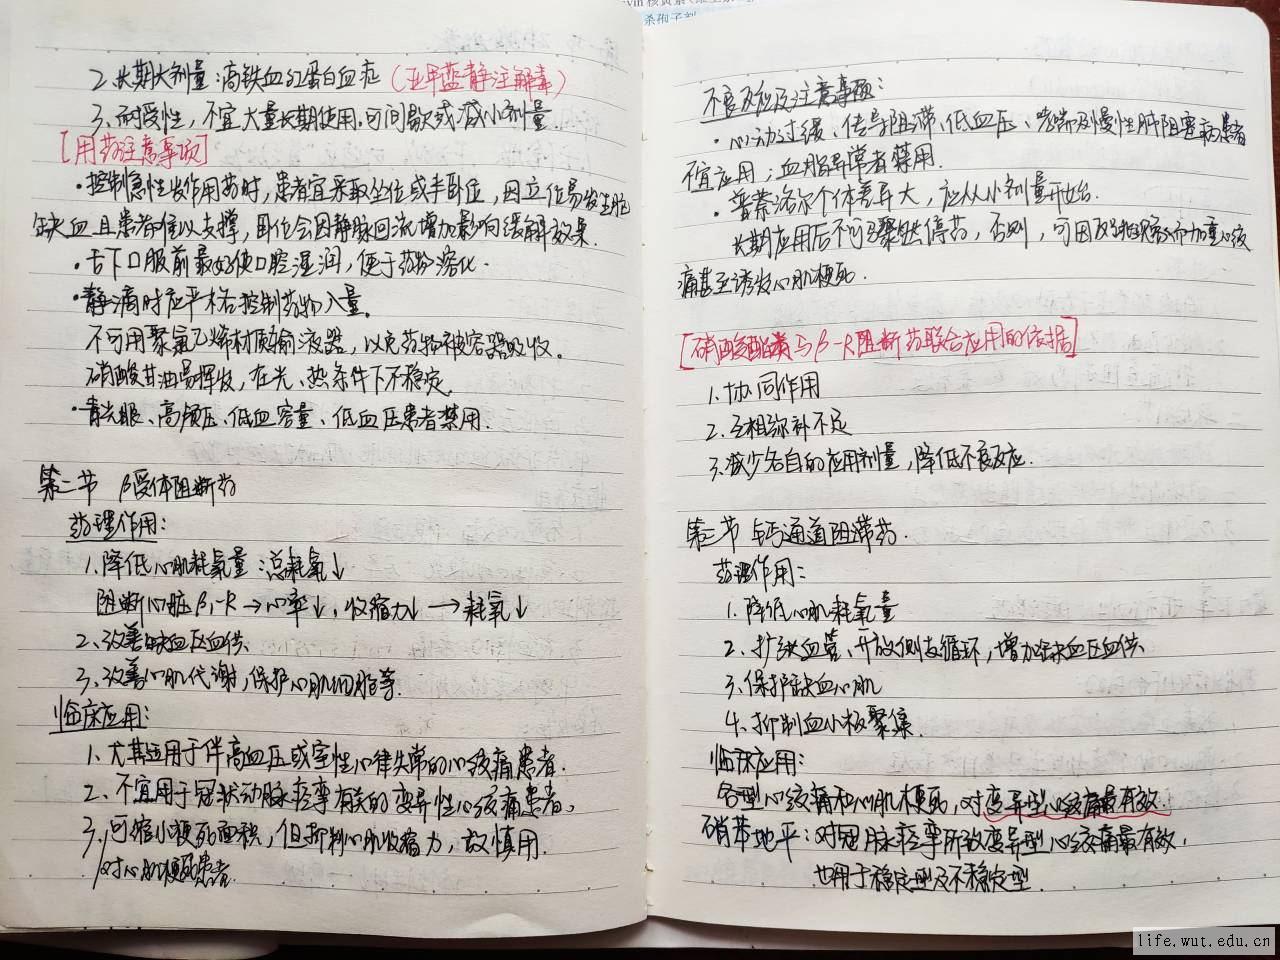 2.长期大剂量:高铁血红蛋白血症(亚甲蓝静注解毒)
3.耐受性,不宜大量长期使用.可间歇或减小剂量.
[用药注意事项]
·控制急性发作用药时,患者宜采取坐位或半卧位,因立位易发生脑
缺血且患者难以支撑,卧位会因静脉回流增加影响缓解效果.
·舌下口服前最好使口腔湿润,便于药物溶化.
·静滴时应严格控制药物入量。
不可用聚氯乙烯材质输液器,以免药物被容器吸收。
硝酸甘油易挥发,在光、热条件下不稳定.
·青光眼、高颅压、低血容量、低血压患者禁用.
第二节 β受体阻断药
药理作用:
1.降低心肌耗氧量:总耗氧↓
阻断心脏β₁-R→心率↓,收缩力↓→耗氧↓
2.改善缺血区血供.
3.改善心肌代谢,保护心肌细胞等.
临床应用:
1.尤其适用于伴高血压或室性心律失常的心绞痛患者.
2.不宜用于冠状动脉痉挛有关的变异性心绞痛患者.
3.可缩小梗死面积,但抑制心肌收缩力,故慎用.
对心肌梗死患者.
杀孢子剂
不良反应及注意事项:
·心动过缓、传导阻滞、低血压、哮喘及慢性肺阻塞病患者
不宜应用;血脂异常者禁用.
·普萘洛尔个体差异大,应从小剂量开始.
长期应用后不可骤然停药,否则,可因反跳现象而加重心绞
痛甚至诱发心肌梗死.
[硝酸酯类与β-R阻断药联合应用的依据]
1.协同作用
2.互相弥补不足
3.减少各自的应用剂量,降低不良反应.
第三节 钙通道阻滞药.
药理作用:
1.降低心肌耗氧量
2.扩张血管、开放侧支循环,增加缺血区血供.
3.保护缺血心肌
4.抑制血小板聚集.
临床应用:
各型心绞痛和心肌梗死,对变异型心绞痛最有效.
硝苯地平:对冠脉痉挛所致变异型心绞痛最有效,
也用于稳定型及不稳定型.
life.wut.edu.cn